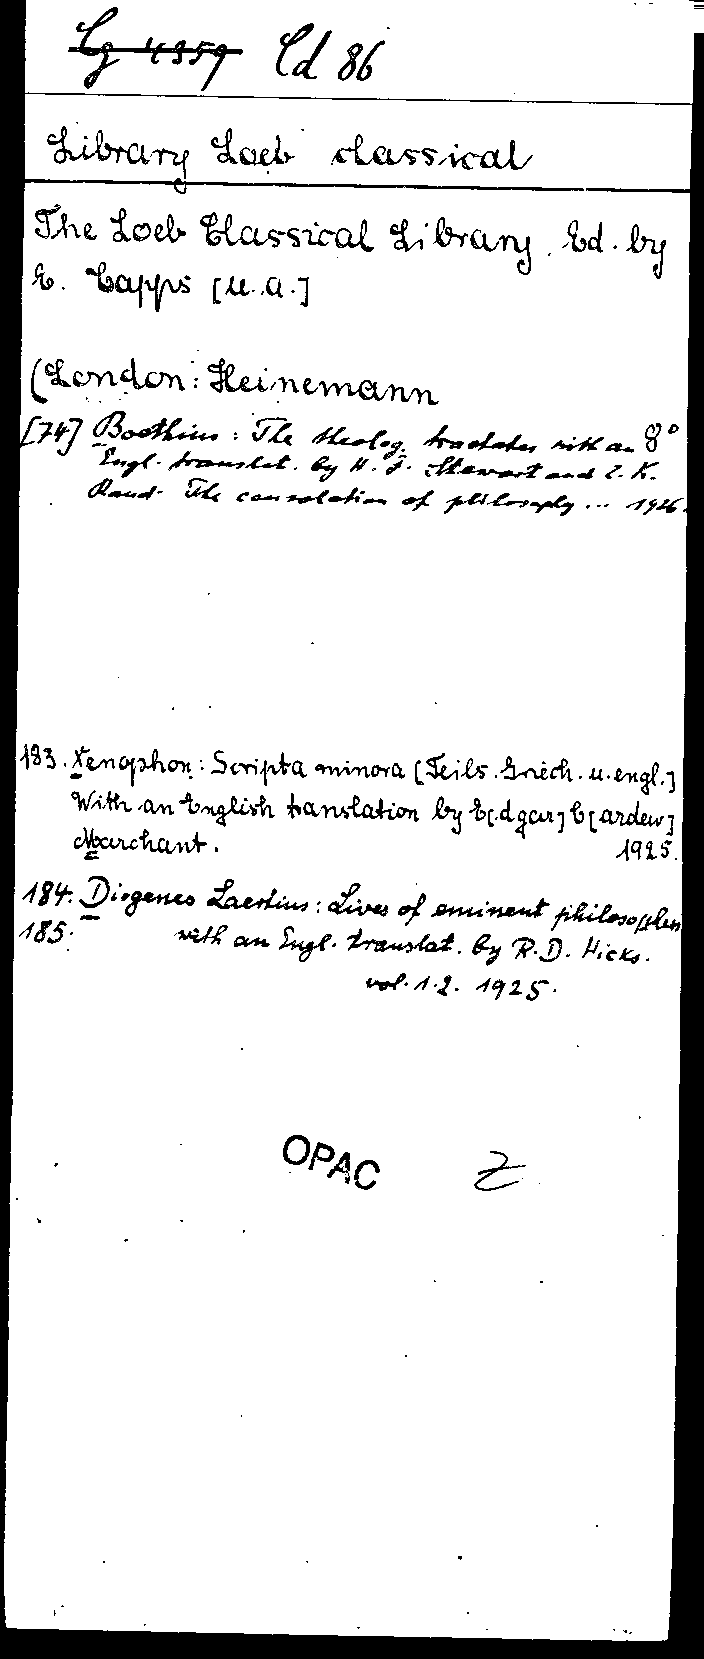 Cg 4359 Cd 86
Library Loeb classical
The Loeb Classical Library. Ed. by
E. Capps [u.a.]
(London: Heinemann
8°
[74] Boethius: The theolog. tractates with an
Engl. translat. by H. F. Stewart and E. K.
Rand. The consolation of philosophy ... 1926.
183. Xenophon: Scripta minora [Teils. Griech. u. engl.]
With an English translation by E[dgar] C[ardew]
Marchant. 1925.
184. Diogenes Laertius: Lives of eminent philosophers
185. with an Engl. translat. by R.D. Hicks.
vol. 1.2. 1925.
OPAC Z